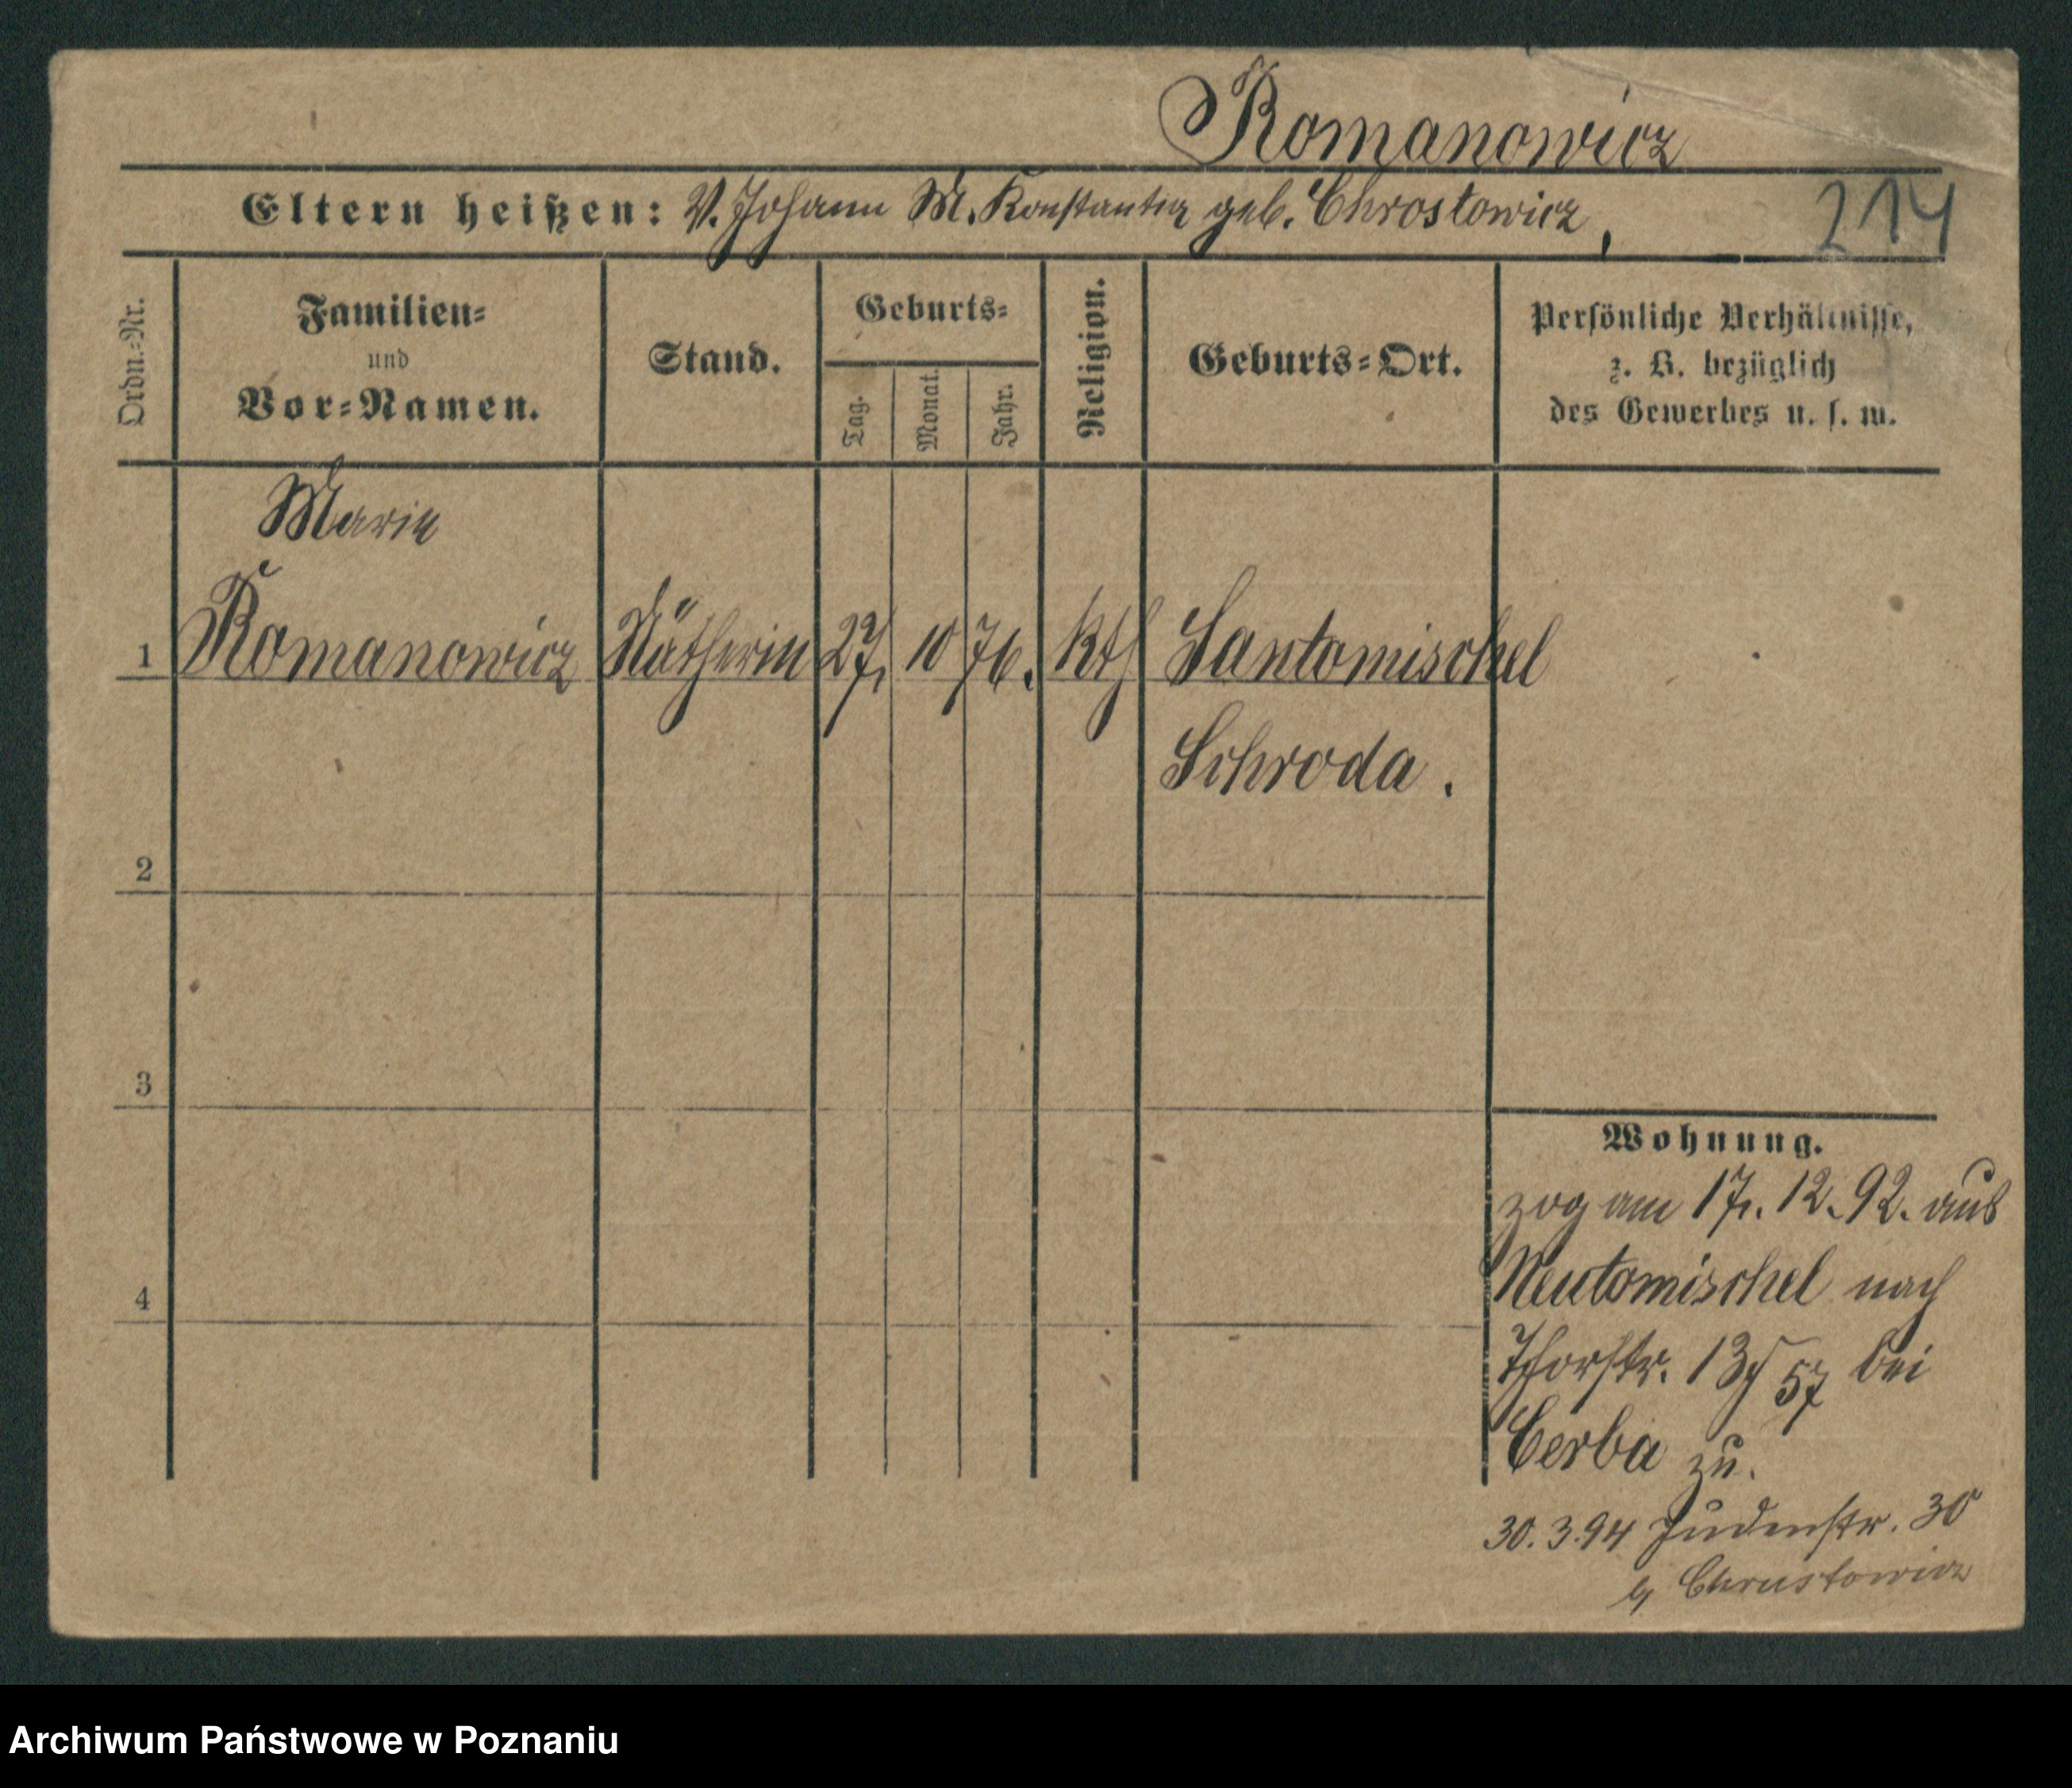 Romanowicz
Eltern heißen: V. Johann M. Konstantia geb. Chrostowicz,
214
Ordn.-Nr.
Familien-
und
Vor-Namen.
Stand.
Geburts-
Tag.
Monat.
Jahr.
Religion.
Geburts-Ort.
Persönliche Verhältnisse,
z. B. bezüglich
des Gewerbes u. s. w.
Marie
1 Romanowicz Nätherin 27. 10 76. kth Santomischel
Schroda.
2
3
4
Wohnung.
zog am 17. 12. 92. aus
Neutomischel nach
Thorstr. 57 bei
Cerba zu.
30. 3. 94 Judenstr. 30
Chrustowicz
Archiwum Państwowe w Poznaniu